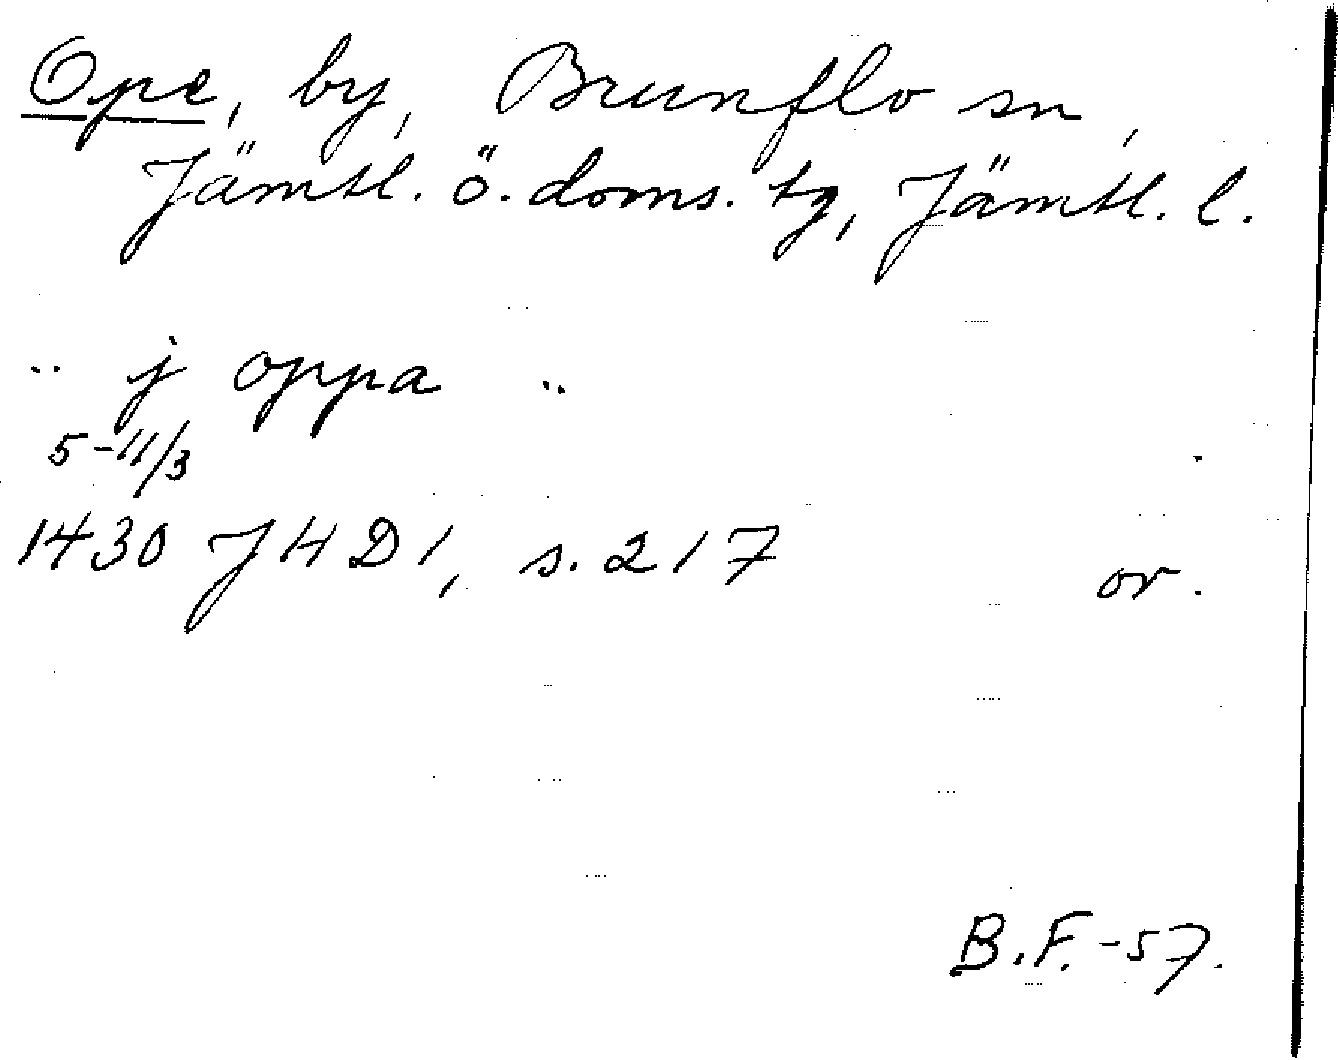 Ope, by, Brunflo sn,
Jämtl. ö. doms. tg, Jämtl. l.
.. j oppa ..
5-11/3
1430 JHD 1, s. 217 or.
B.F.-57.